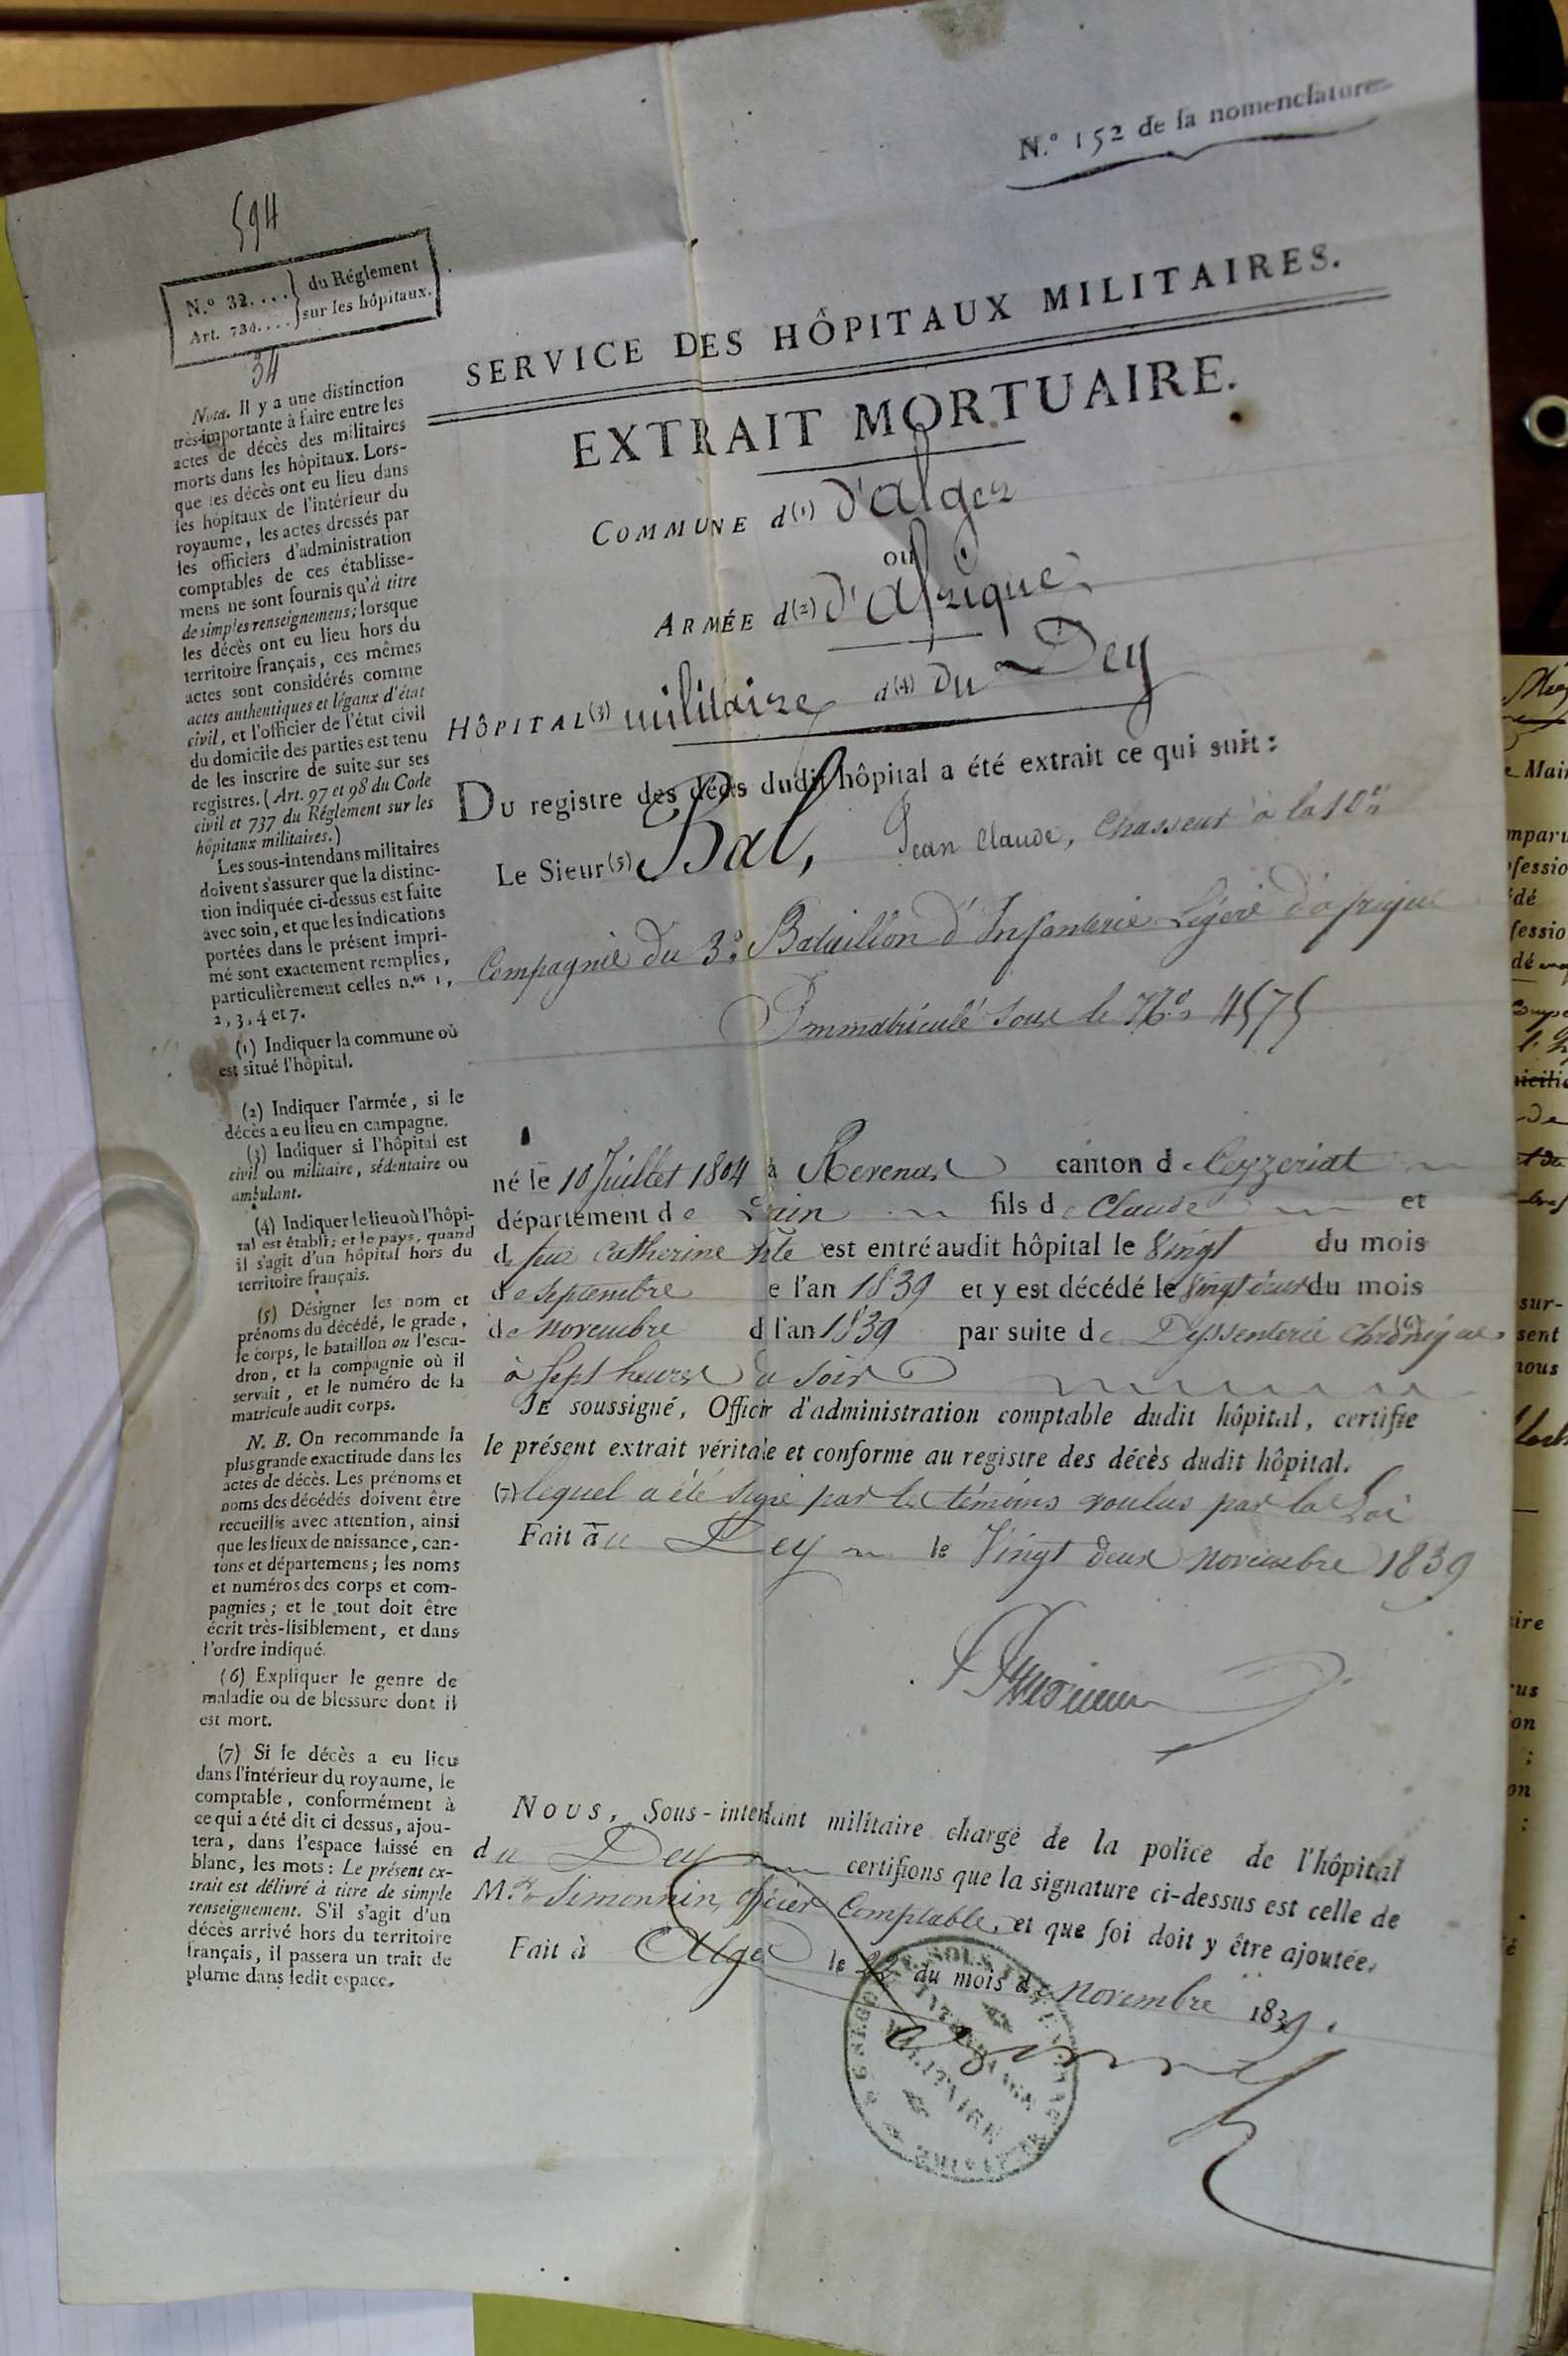 N.º 152 de la nomenclature
594
N.º 32.... } du Réglement
Art. 734.... } sur les hôpitaux.
34
SERVICE DES HÔPITAUX MILITAIRES.
EXTRAIT MORTUAIRE.
COMMUNE d(1) d'alger
ou
ARMÉE d(2) d'afrique
HÔPITAL(3) militaire d(4) du Dey
Du registre des décès dudit hôpital a été extrait ce qui suit :
Le Sieur(5) Bal, Jean Claude, Chasseur à la 10e
Compagnie du 3e Bataillon d'Infanterie Légère d'afrique
Immatriculé sous le No 4575
né le 10 Juillet 1804 à Revenas canton d Ceyzeriat
département de L'ain fils de Claude et
d feue Catherine est entré audit hôpital le Vingt du mois
de Septembre e l'an 1839 et y est décédé le Vingt deux du mois
de Novembre d l'an 1839 par suite de Dyssenterie Chronique (6)
à Sept heures du Soir
JE soussigné, Officir d'administration comptable dudit hôpital, certifie
le présent extrait véritale et conforme au registre des décès dudit hôpital.
(7) lequel a été signé par les témoins voulus par la Loi
Fait au Dey le Vingt deux novembre 1839
Nous, Sous-intendant militaire chargé de la police de l'hôpital
du Dey certifions que la signature ci-dessus est celle de
M.r Simonnin, officier Comptable, et que foi doit y être ajoutée.
Fait à Alger le 22 du mois de Novembre 1839.
INTENDANCE
MILITAIRE
Nota. Il y a une distinction
très-importante à faire entre les
actes de décès des militaires
morts dans les hôpitaux. Lors-
que les décès ont eu lieu dans
les hôpitaux de l'intérieur du
royaume, les actes dressés par
les officiers d'administration
comptables de ces établisse-
mens ne sont fournis qu'à titre
de simples renseignemens; lorsque
les décès ont eu lieu hors du
territoire français, ces mêmes
actes sont considérés comme
actes authentiques et légaux d'état
civil, et l'officier de l'état civil
du domicile des parties est tenu
de les inscrire de suite sur ses
registres. (Art. 97 et 98 du Code
civil et 737 du Réglement sur les
hôpitaux militaires.)
Les sous-intendans militaires
doivent s'assurer que la distinc-
tion indiquée ci-dessus est faite
avec soin, et que les indications
portées dans le présent impri-
mé sont exactement remplies,
particulièrement celles n.os 1,
2, 3, 4 et 7.
(1) Indiquer la commune où
est situé l'hôpital.
(2) Indiquer l'armée, si le
décès a eu lieu en campagne.
(3) Indiquer si l'hôpital est
civil ou militaire, sédentaire ou
ambulant.
(4) Indiquer le lieu où l'hôpi-
tal est établi; et le pays, quand
il s'agit d'un hôpital hors du
territoire français.
(5) Désigner les nom et
prénoms du décédé, le grade,
le corps, le bataillon ou l'esca-
dron, et la compagnie où il
servait, et le numéro de la
matricule audit corps.
N. B. On recommande la
plus grande exactitude dans les
actes de décès. Les prénoms et
noms des décédés doivent être
recueillis avec attention, ainsi
que les lieux de naissance, can-
tons et départemens; les noms
et numéros des corps et com-
pagnies; et le tout doit être
écrit très-lisiblement, et dans
l'ordre indiqué.
(6) Expliquer le genre de
maladie ou de blessure dont il
est mort.
(7) Si le décès a eu lieu
dans l'intérieur du royaume, le
comptable, conformément à
ce qui a été dit ci dessus, ajou-
tera, dans l'espace laissé en
blanc, les mots: Le présent ex-
trait est délivré à titre de simple
renseignement. S'il s'agit d'un
décès arrivé hors du territoire
français, il passera un trait de
plume dans ledit espace.